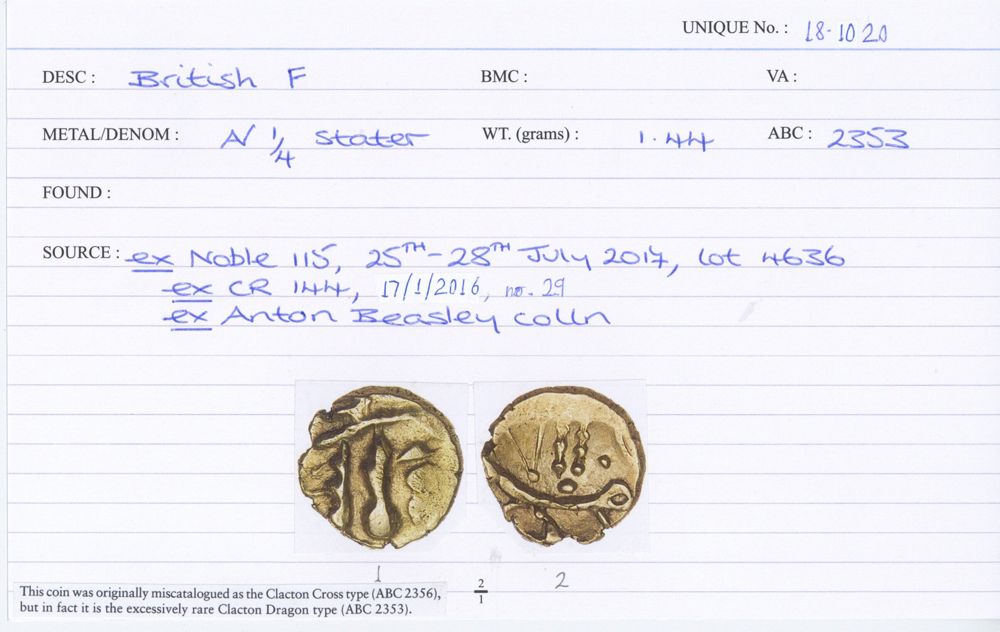 UNIQUE No. : 18-1020
DESC : British F BMC : VA :
METAL/DENOM : A/ 1/4 stater WT. (grams) : 1.44 ABC : 2353
FOUND :
SOURCE : ex Noble 115, 25TH-28TH July 2017, lot 4636
ex CR 144, 17/1/2016, no. 29
ex Anton Beasley colln
1 2/1 2
This coin was originally miscatalogued as the Clacton Cross type (ABC 2356),
but in fact it is the excessively rare Clacton Dragon type (ABC 2353).